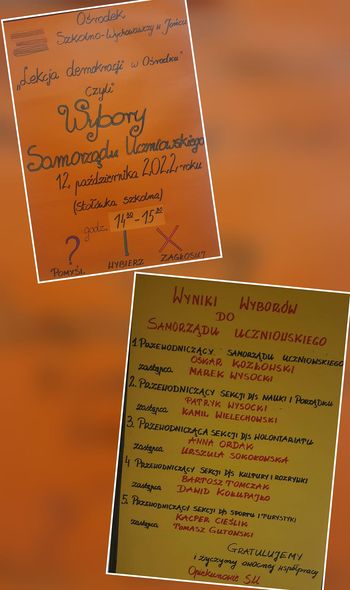 Ośrodek
Szkolno-Wychowawczy w
"Lekcja demokracji w Ośrodku"
czyli
Wybory
Samorządu Uczniowskiego
12. października 2022 roku
(Stołówka szkolna)
godz. 14³⁰ - 15³⁰
? ! X
POMYŚL WYBIERZ ZAGŁOSUJ
WYNIKI WYBORÓW
DO
SAMORZĄDU UCZNIOWSKIEGO
1. PRZEWODNICZĄCY SAMORZĄDU UCZNIOWSKIEGO
OSKAR KOZŁOWSKI
zastępca MAREK WYSOCKI
2. PRZEWODNICZĄCY SEKCJI D/S NAUKI I PORZĄDKU
PATRYK WYSOCKI
zastępca KAMIL WIELECHOWSKI
3. PRZEWODNICZĄCA SEKCJI D/S WOLONTARIATU
ANNA ORDAK
zastępca URSZULA SOKOŁOWSKA
4 PRZEWODNICZĄCY SEKCJI D/S KULTURY I ROZRYWKI
BARTOSZ TOMCZAK
zastępca DAWID KOKUPAJKO
5. PRZEWODNICZĄCY SEKCJI D/S SPORTU I TURYSTYKI
KACPER CIEŚLIK
zastępca TOMASZ GUTOWSKI
GRATULUJEMY
i życzymy owocnej współpracy
Opiekunowie S.U